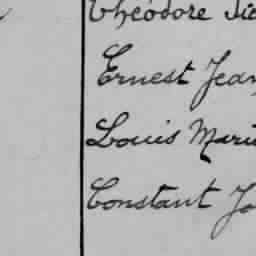 Théodore
Ernest Jean
Louis Mari
Constant